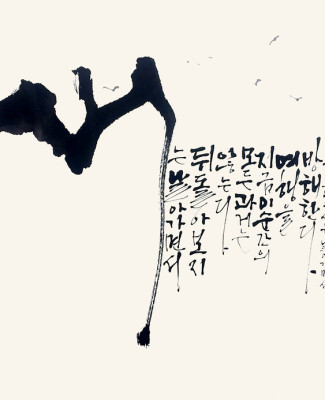 새
는 날아가면서
뒤돌아보지
않는다
모든 과거는
지금 이 순간의
여행을
방해한다